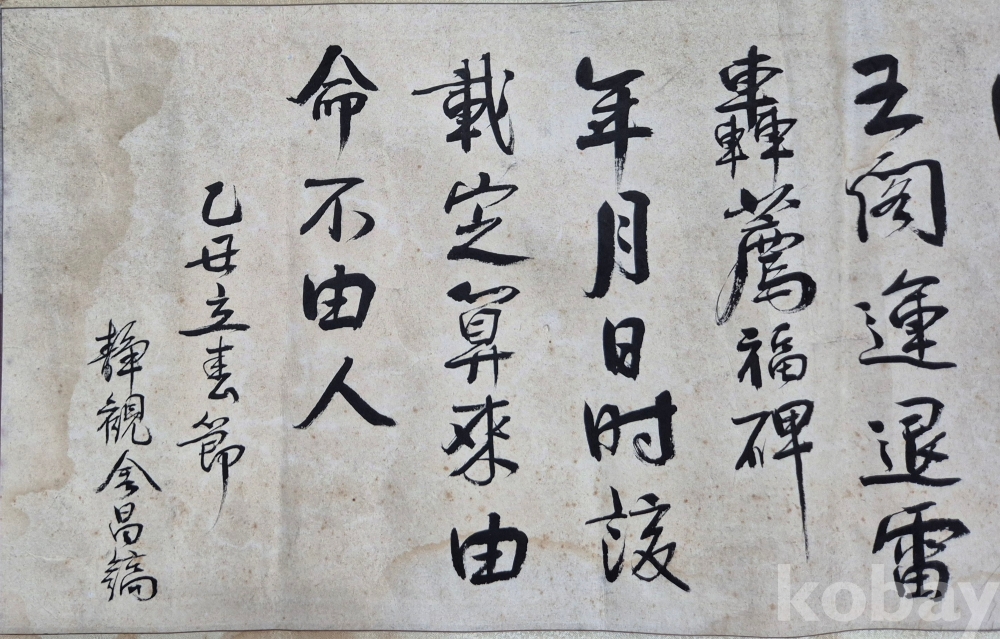 王閣運退雷
轟薦福碑
年月日时該
載定算來由
命不由人
乙丑立春節
靜觀金昌鎬
kobay